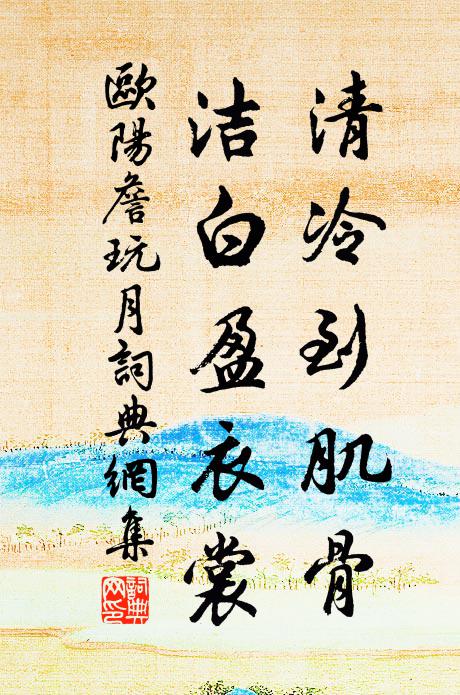 清冷到肌骨
洁白盈衣裳
歐陽詹玩月詞典網集
詞典網印